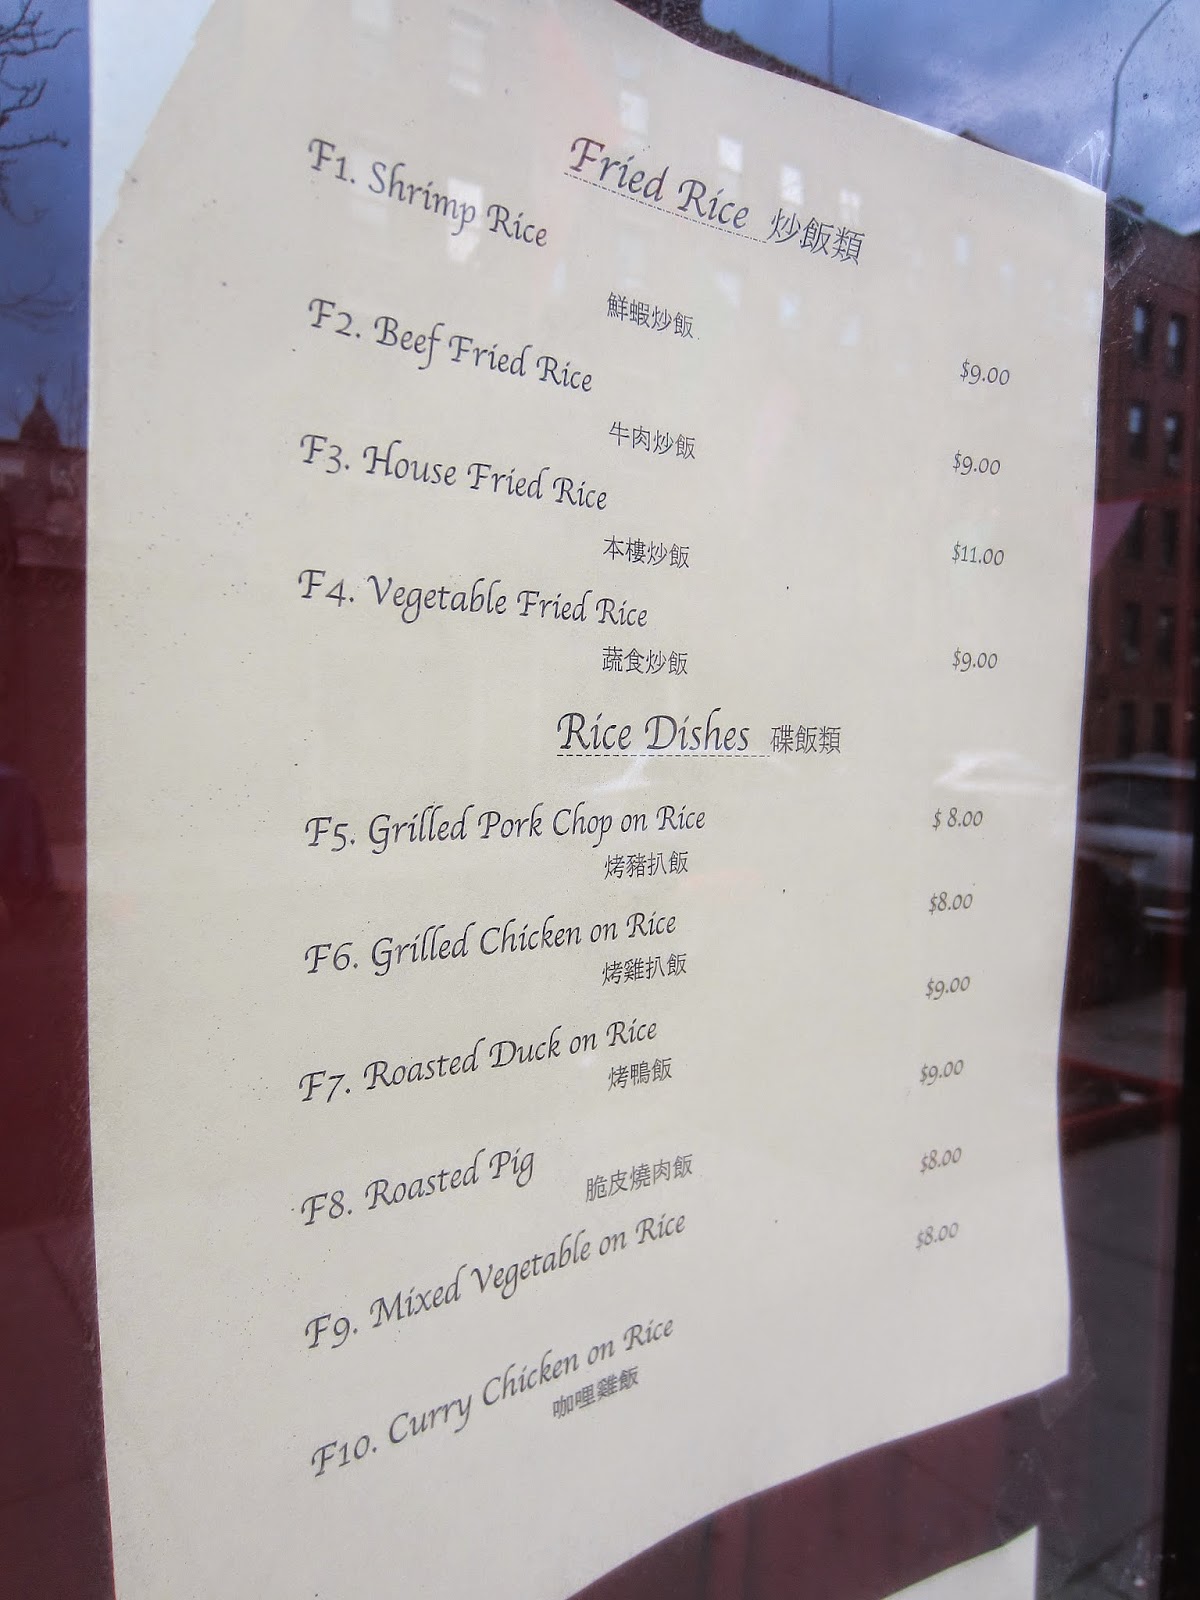 Fried Rice 炒飯類
F1. Shrimp Rice
鮮蝦炒飯
$9.00
F2. Beef Fried Rice
牛肉炒飯
$9.00
F3. House Fried Rice
本樓炒飯
$11.00
F4. Vegetable Fried Rice
蔬食炒飯
$9.00
Rice Dishes 碟飯類
F5. Grilled Pork Chop on Rice
$ 8.00
烤豬扒飯
F6. Grilled Chicken on Rice
$8.00
烤雞扒飯
F7. Roasted Duck on Rice
$9.00
烤鴨飯
F8. Roasted Pig
$9.00
脆皮燒肉飯
F9. Mixed Vegetable on Rice
$8.00
F10. Curry Chicken on Rice
$8.00
咖哩雞飯